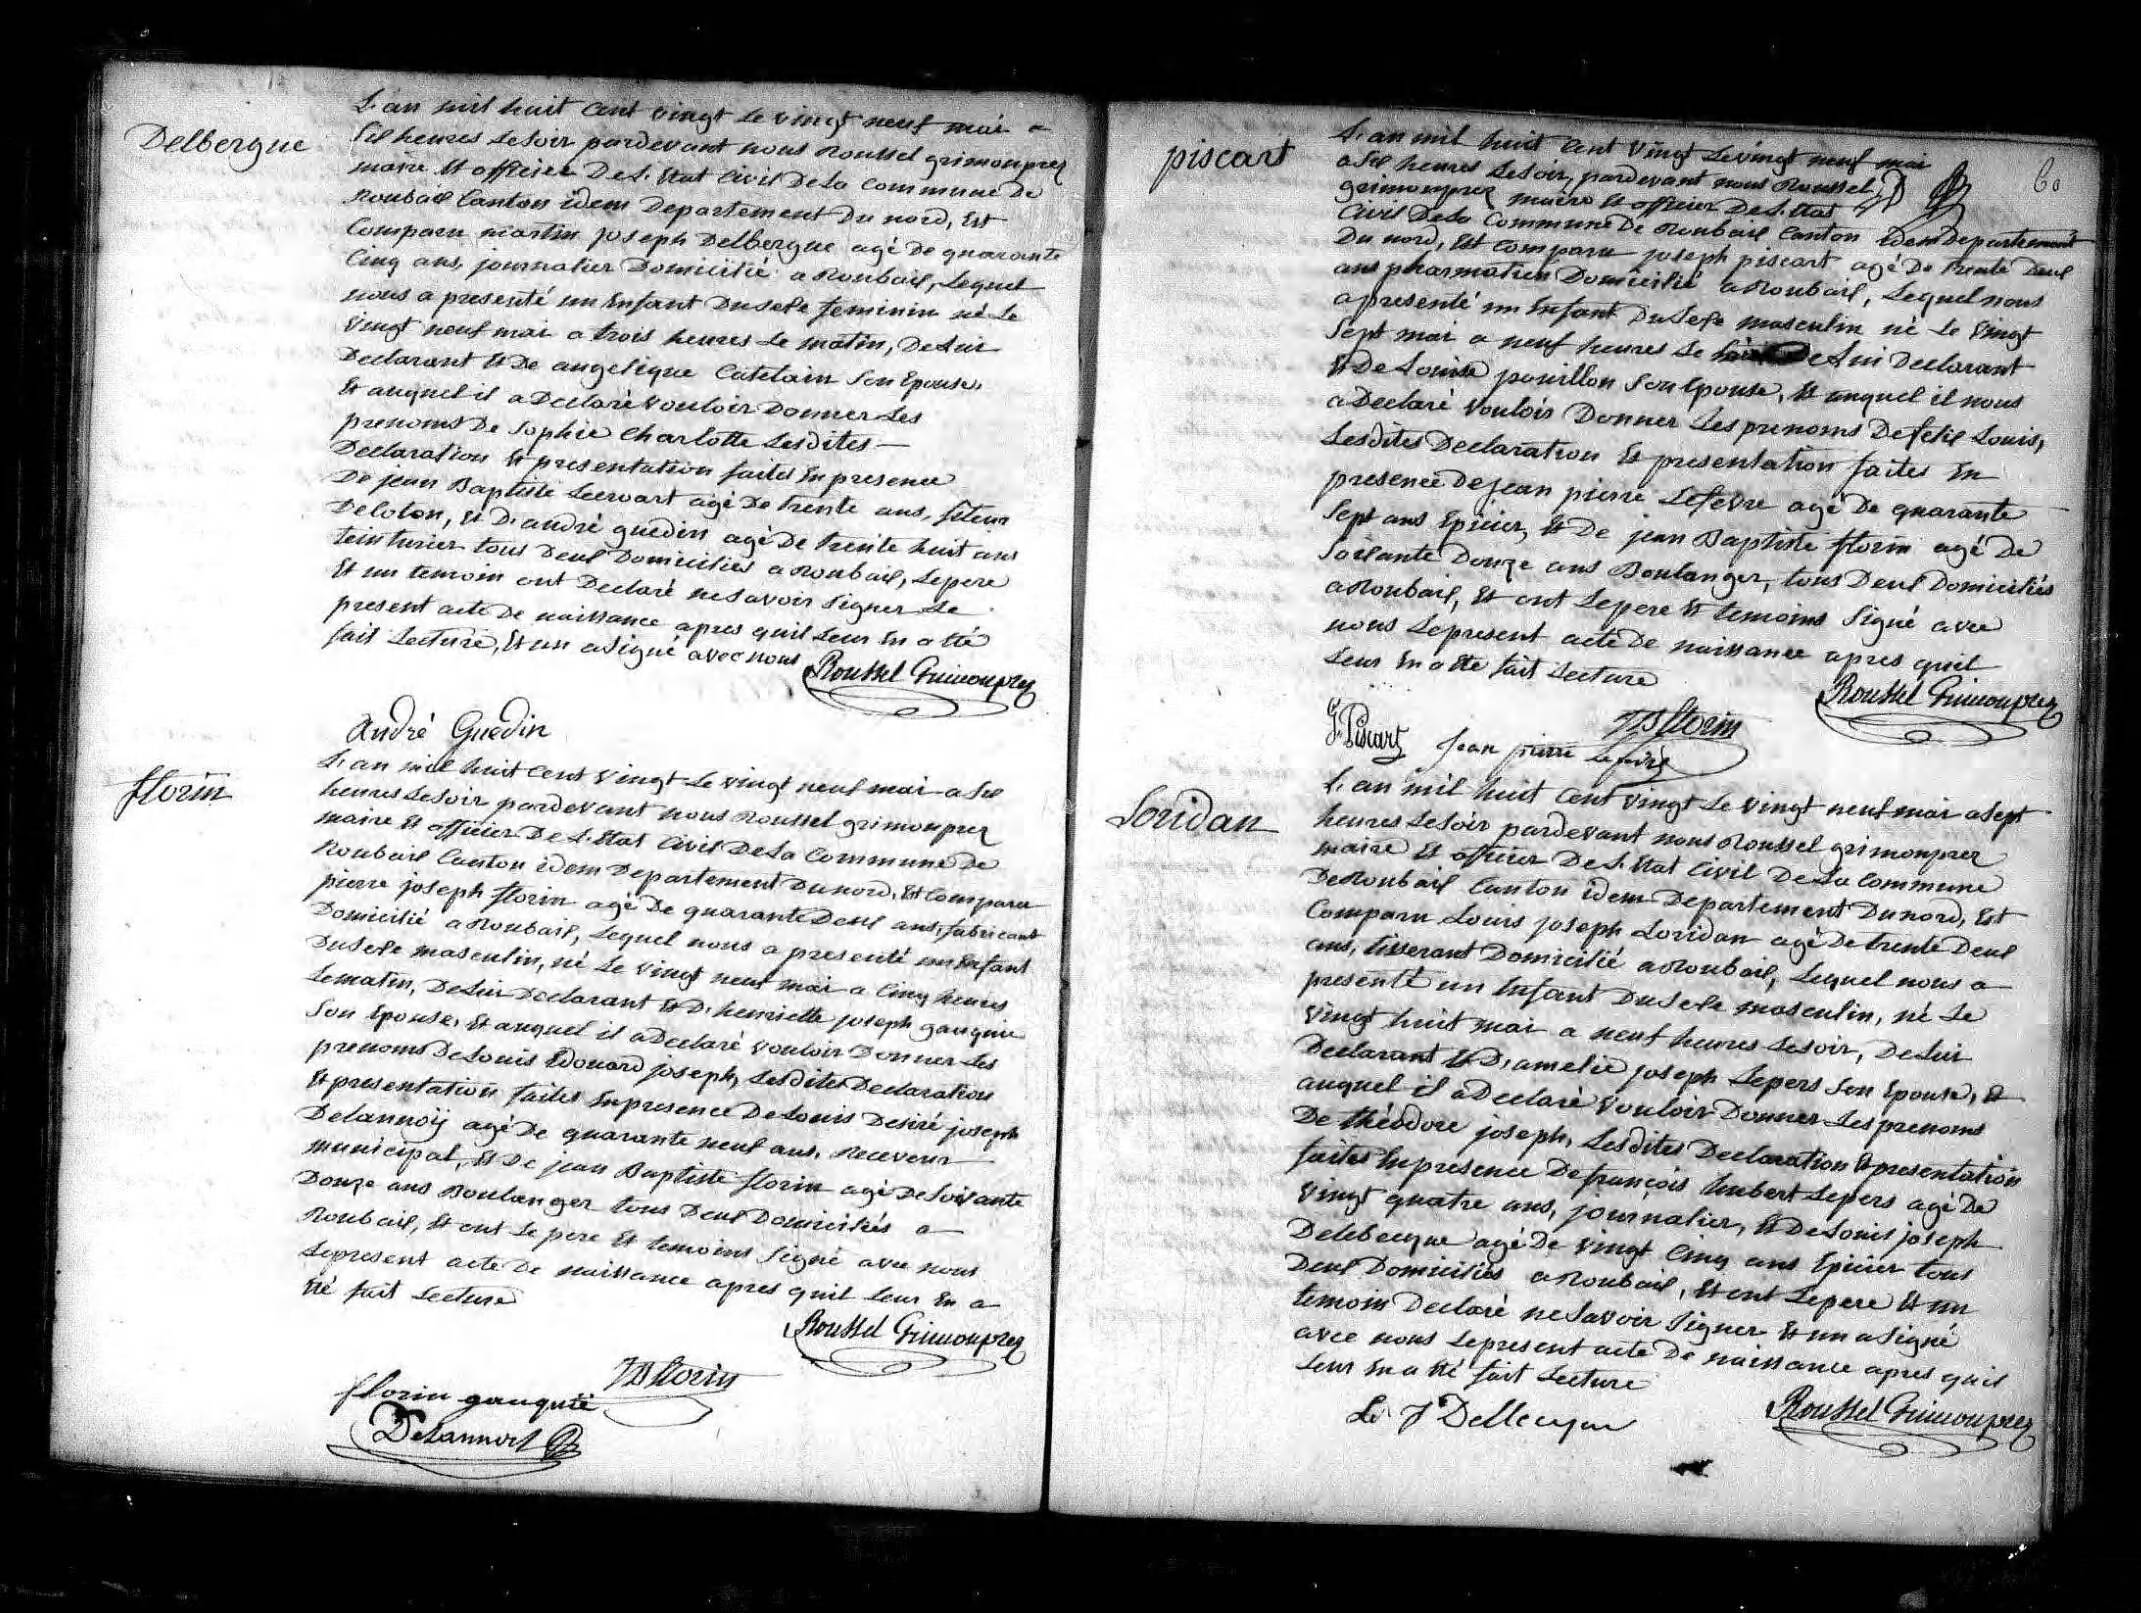 Delbergue
L'an mil huit cent vingt le vingt neuf mai a
sil heures le soir pardevant nous Roussel grimonprez
maire et officier De L'Etat Civil De la Commune De
Roubail Canton idem Departement Du nord, Est
Comparu martin joseph Delbergue agé De quarante
Cinq ans, journalier Domicilié a Roubail, Lequel
nous a presenté un Enfant Du sele feminin né Le
vingt neuf mai a trois heures Le matin, De lui
Declarant Et De angelique Catelain Son Epouse,
Et auquel il a Declaré vouloir Donner Les
prenoms De Sophie Charlotte Lesdites
Declaration Et presentation faites En presence
De jean Baptiste agé De trente ans, fileur
De Coton, Et D'andré guedin agé De trente huit ans
teinturier tous Deul Domiciliés a Roubail, Le pere
Et un temoin ont Declaré ne Savoir Signer Le
present acte De naissance apres quil Leur En a été
fait Lecture, Et un a signé avec nous Roussel Grimonprez
André Guedin
florin
L'an mil huit Cent vingt Le vingt neuf mai a sil
heures Le soir pardevant nous Roussel grimonprez
maire Et officier De L'Etat Civil De La Commune De
Roubail Canton idem Departement Du nord, Est Comparu
pierre joseph florin agé De quarante Deul ans, fabricant
Domicilié a Roubail, Lequel nous a presenté un Enfant
Du sele masculin, né Le vingt neuf mai a Cinq heures
Le matin, De lui Declarant Et D'henriette joseph gauquie
Son Epouse, Et auquel il a Declaré vouloir Donner Les
prenoms De Louis Edouard joseph, Lesdites Declaration
Et presentation faites En presence De Louis Desiré joseph
Delannoÿ agé De quarante neuf ans, Receveur
municipal, Et De jean Baptiste florin agé De soixante
Douze ans Boulanger tous Deul Domiciliés a
Roubail, Et ont Le pere Et temoins Signé avec nous
Le present acte De naissance apres quil Leur En a
été fait Lecture
Roussel Grimonprez
JB florin
florin gauquié
Delannoy
piscart
60
L'an mil huit Cent vingt Le vingt neuf mai
a sil heures Le soir, pardevant nous Roussel
grimonprez maire Et officier De L'Etat
Civil De La Commune De Roubail Canton idem Departement
Du nord, Est Comparu joseph piscart agé De trente Deul
ans pharmatien Domicilié a Roubail, Lequel nous
a presenté un Enfant Du Sele masculin né Le vingt
Sept mai a neuf heures Le De Lui Declarant
Et De Louise pouillon Son Epouse, Et auquel il nous
a Declaré vouloir Donner Les prenoms De felil Louis,
Lesdites Declaration Et presentation faites En
presence De jean pierre Lefevre agé De quarante
Sept ans Epicier, Et De jean Baptiste florin agé De
Soilante Douze ans Boulanger, tous Deul Domiciliés
a Roubail, Et ont Le pere Et temoins Signé avec
nous Le present acte De naissance apres quil
Leur En a Eté fait Lecture
Roussel Grimonprez
JB florin
J. Piscart Jean pierre Lefevre
Loridan
L'an mil huit Cent vingt Le vingt neuf mai a sept
heures Le soir pardevant nous Roussel grimonprez
maire Et officier De L'Etat Civil De La Commune
De Roubail Canton idem Departement Du nord, Est
Comparu Louis joseph Loridan agé De trente Deul
ans, tisserant Domicilié a Roubail, Lequel nous a
presenté un Enfant Du Sele masculin, né Le
vingt huit mai a neuf heures Le soir, De Lui
Declarant Et D'amelie joseph Lepers Son Epouse, Et
auquel il a Declaré vouloir Donner Les prenoms
De théodore joseph, Lesdites Declaration Et presentation
faites En presence De françois hubert Lepers agé De
vingt quatre ans, journalier, Et De Louis joseph
Delebecque agé De vingt Cinq ans Epicier tous
Deul Domiciliés a Roubail, Et ont Le pere Et un
temoin Declaré ne Savoir Signer Et un a Signé
avec nous Le present acte De naissance apres quil
Leur En a été fait Lecture
Roussel Grimonprez